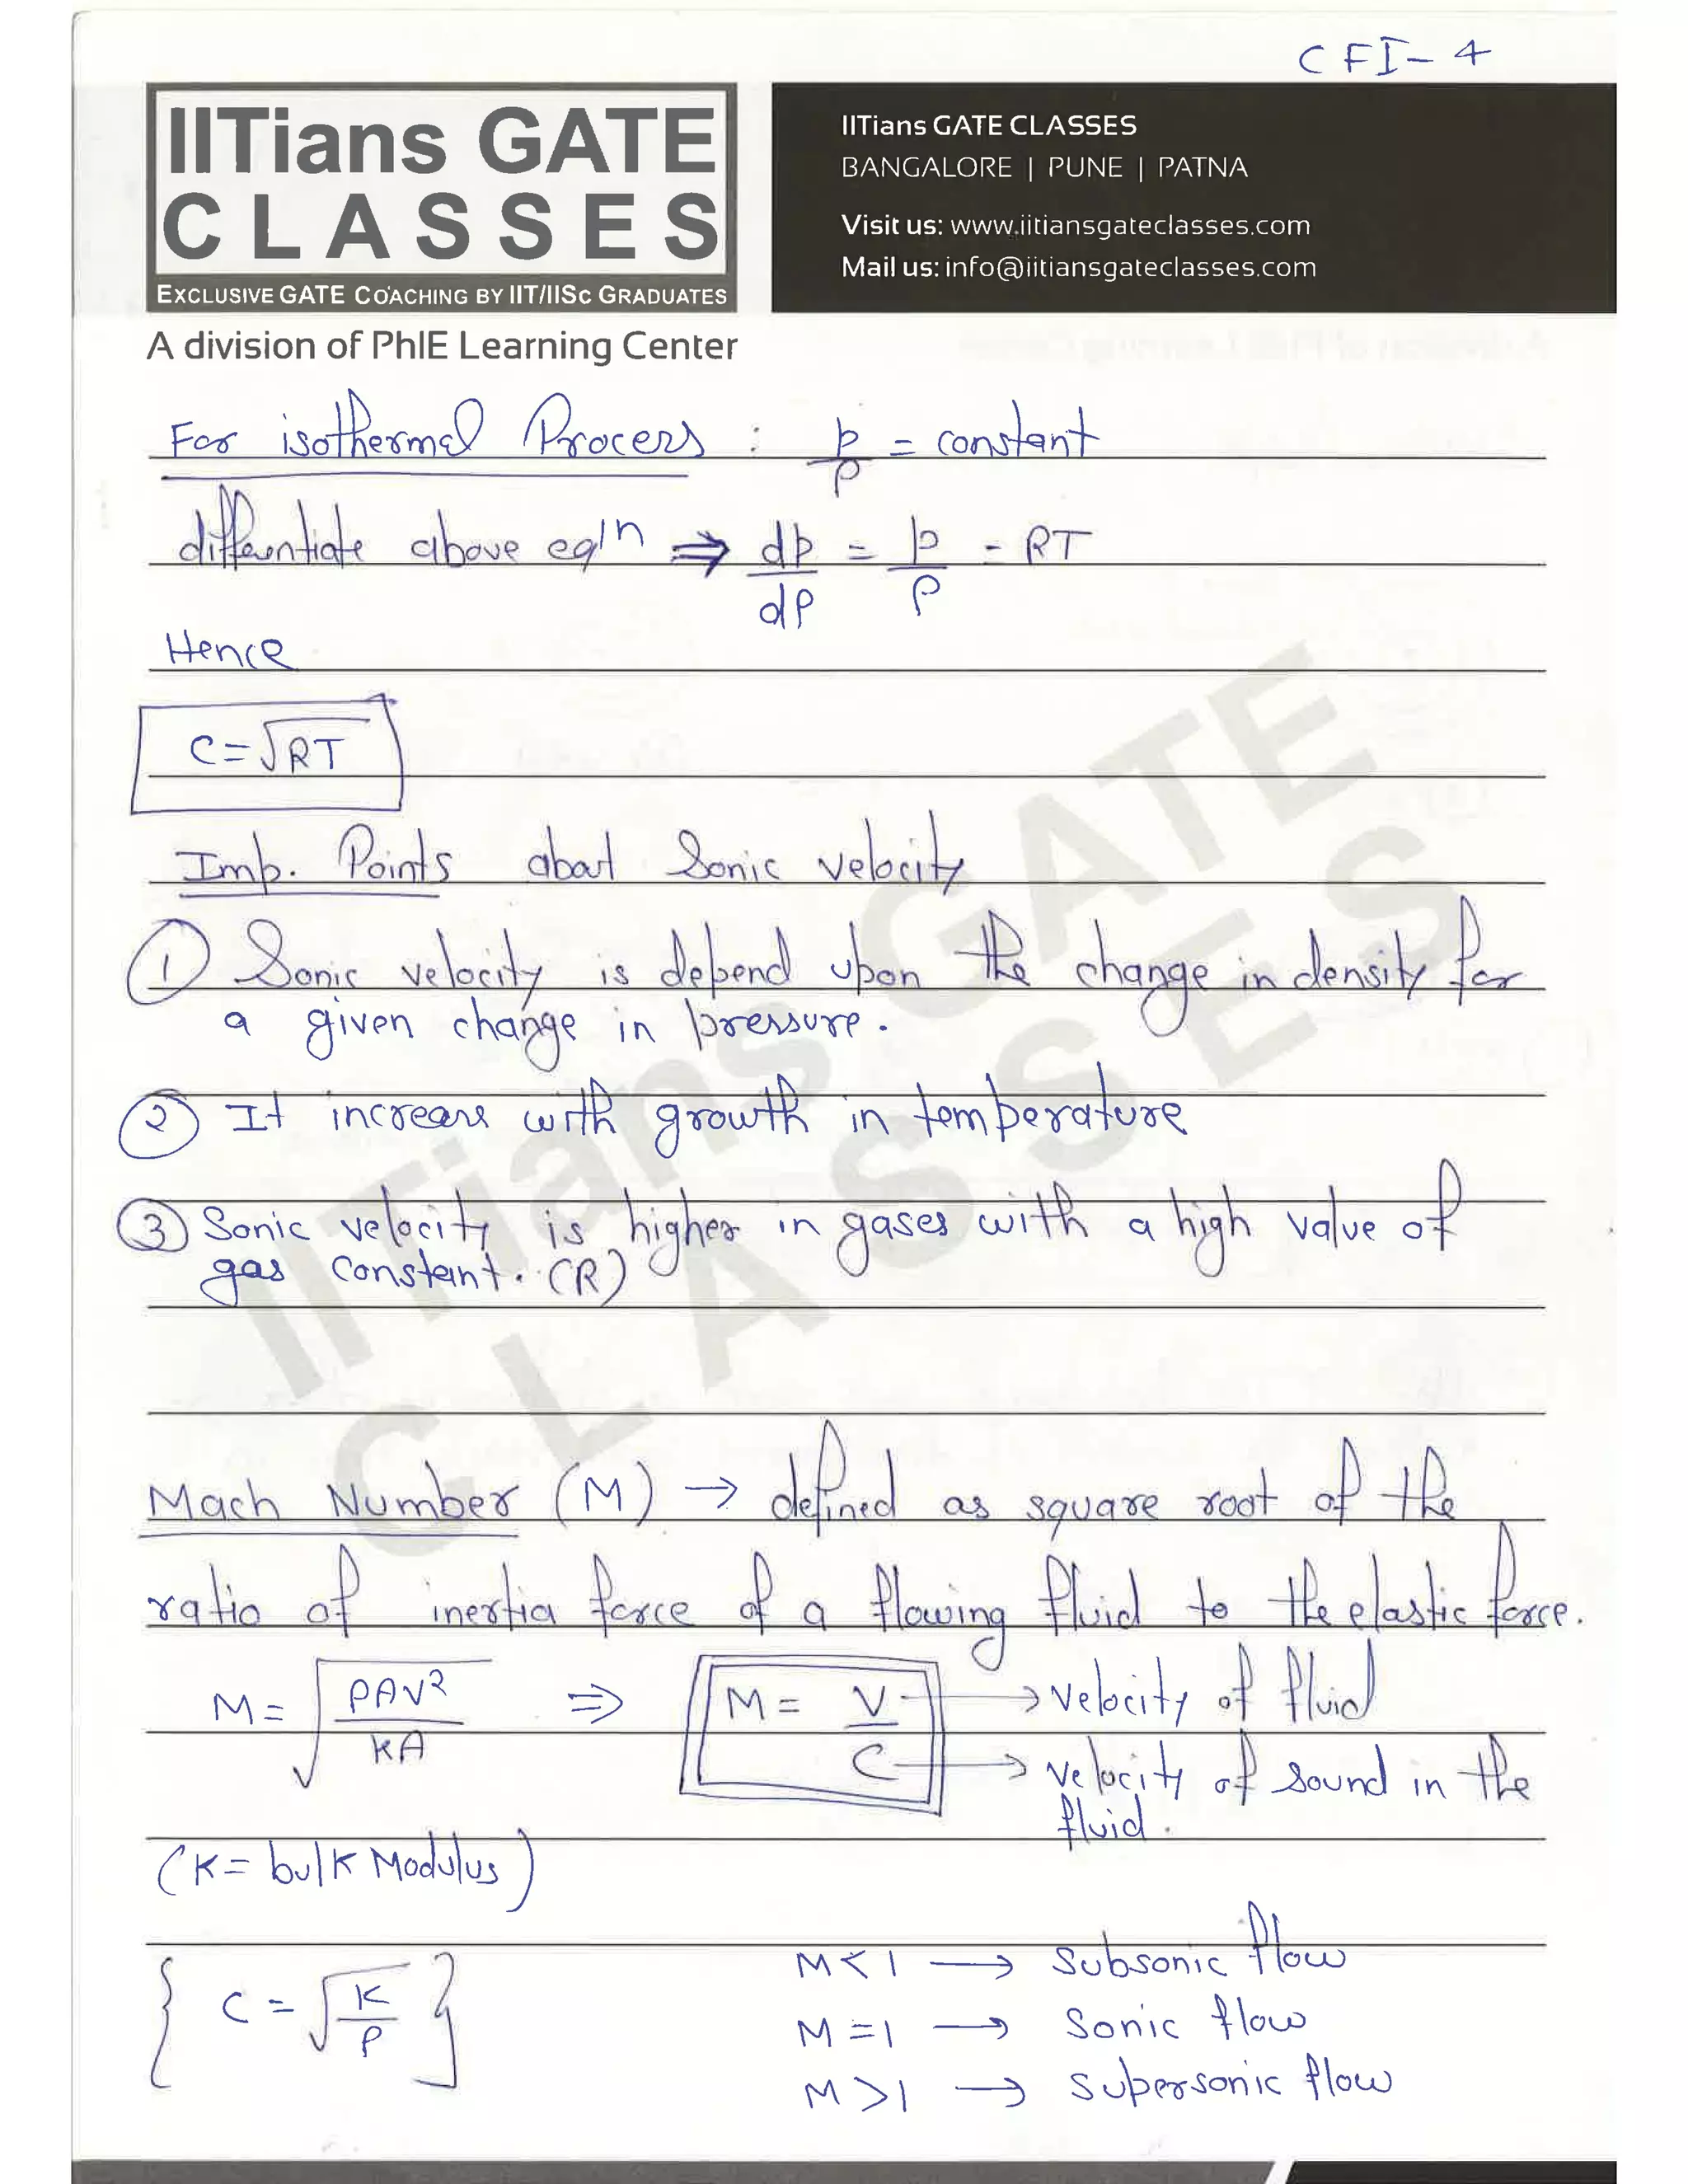 CFI-4
IITians GATE
CLASSES
EXCLUSIVE GATE COACHING BY IIT/IISc GRADUATES
A division of PhIE Learning Center
IITians GATE CLASSES
BANGALORE | PUNE | PATNA
Visit us: www.iitiansgateclasses.com
Mail us: info@iitiansgateclasses.com
For isothermal Process : p/ρ = constant
differentiate above eq/n ⇒ dp/dρ = p/ρ = RT
Hence
C = √RT
Imp. Points about Sonic velocity
① Sonic velocity is depend upon the change in density for
a given change in pressure.
② It increase with growth in temperature
③ Sonic velocity is higher in gases with a high value of
gas constant. (R)
Mach Number (M) → defined as square root of the
ratio of inertia force of a flowing fluid to the elastic force.
M = √(ρAV²/KA) ⇒ M = V/C
→ velocity of fluid
→ velocity of sound in the
fluid.
(K = bulk Modulus)
{ C = √(K/ρ) }
M < 1 → Subsonic flow
M = 1 → Sonic flow
M > 1 → Supersonic flow
IITians GATE
CLASSES